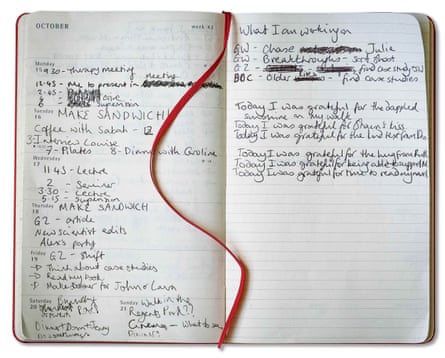 OCTOBER week 42
Monday
15 9.30 - Therapy meeting
12.45 - Me to present in meeting
2 - 2.45 - case
8 - Supervision
Tuesday
16 MAKE SANDWICH!
Coffee with Sarah - 12
3 - Interview Louise
7 - Pilates 8 - Dinner with Caroline
Wednesday
17
11.45 - Lecture
2 - Seminar
3.30 - Lecture
5.15 - Supervision
Thursday
18 MAKE SANDWICH
G2 - article
New Scientist edits
Alex's party
Friday
19 G2 - Shift
→ Think about case studies
→ Read my book
→ Make dinner for John &
Saturday
20
Sunday
21 Walk in the
Regents Park??
Dinner Dom + Tracy
Cinema - What to see
Dinner?
What I am working on
GW - Chase Julie
GW - Breakthroughs - sort shoot
G2 - find case study, SW
BBC - Older - find case studies
Today I was grateful for the dappled
sunshine on my walk
Today I was grateful for kiss
Today I was grateful for the
Today I was grateful for the hug from
Today I was grateful for being able to
Today I was grateful for time to read my